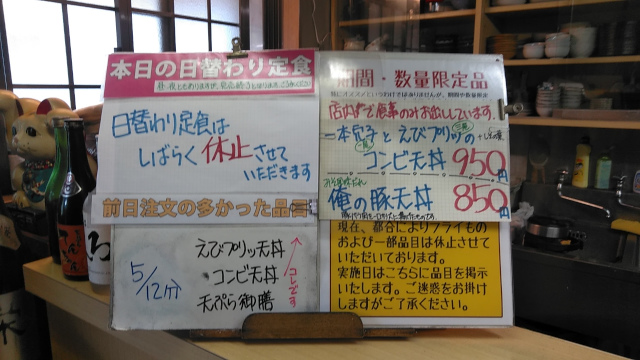 本日の日替わり定食
日替わり定食は
しばらく休止させて
いただきます
前日注文の多かった品
5/12分
えびプリッ天丼
コンビ天丼
天ぷら御膳
コレです
期間・数量限定品
店内で食事のみお出ししています。
一本穴子とえびプリッの
コンビ天丼 950円
俺の豚天丼 850円
現在、都合によりフライもの
および一部品目は休止させて
いただいております。
実施日はこちらに品目を掲示
いたします。ご迷惑をお掛け
しますがご了承ください。